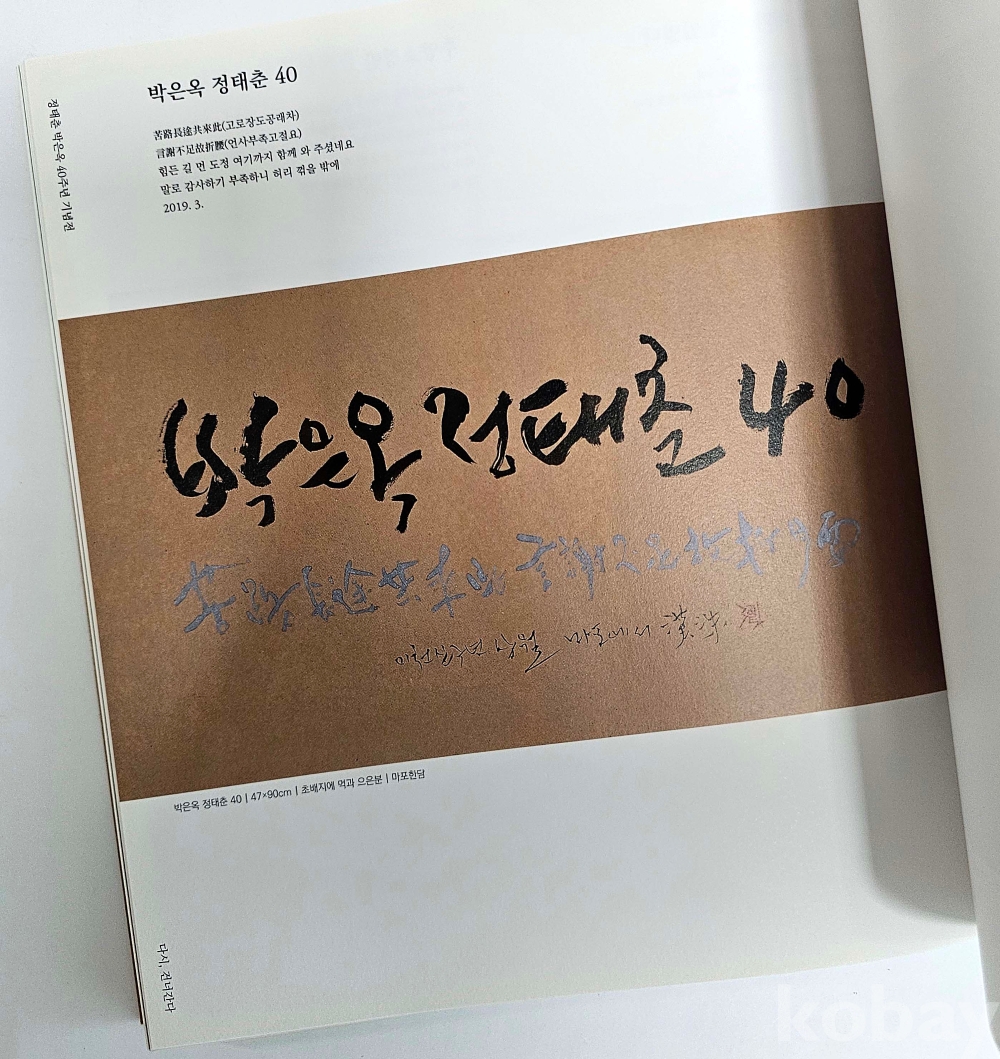 박은옥 정태춘 40
苦路長途共來此(고로장도공래차)
言謝不足故折腰(언사부족고절요)
힘든 길 먼 도정 여기까지 함께 와 주셨네요
말로 감사하기 부족하니 허리 꺾을 밖에
2019. 3.
정태춘 박은옥 40주년 기념전
박은옥 정태춘 40
苦路長途共來此 言謝不足故折腰
이천십구년 삼월 마포에서 漢
박은옥 정태춘 40 | 47×90cm | 초배지에 먹과 으은분 | 마포한담
다시, 건너간다
kobay